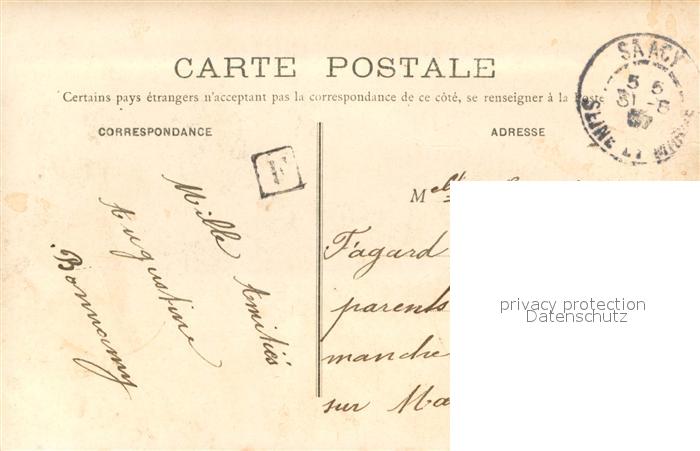 CARTE POSTALE
Certains pays étrangers n'acceptant pas la correspondance de ce côté, se renseigner à la Poste
CORRESPONDANCE
ADRESSE
SAACY
5 5
31 - 5
07
SEINE ET MARNE
F
Mille Amitiés
Augustine
Bonnamy
Melle
Fagard
parents
mandre
sur Ma
privacy protection
Datenschutz